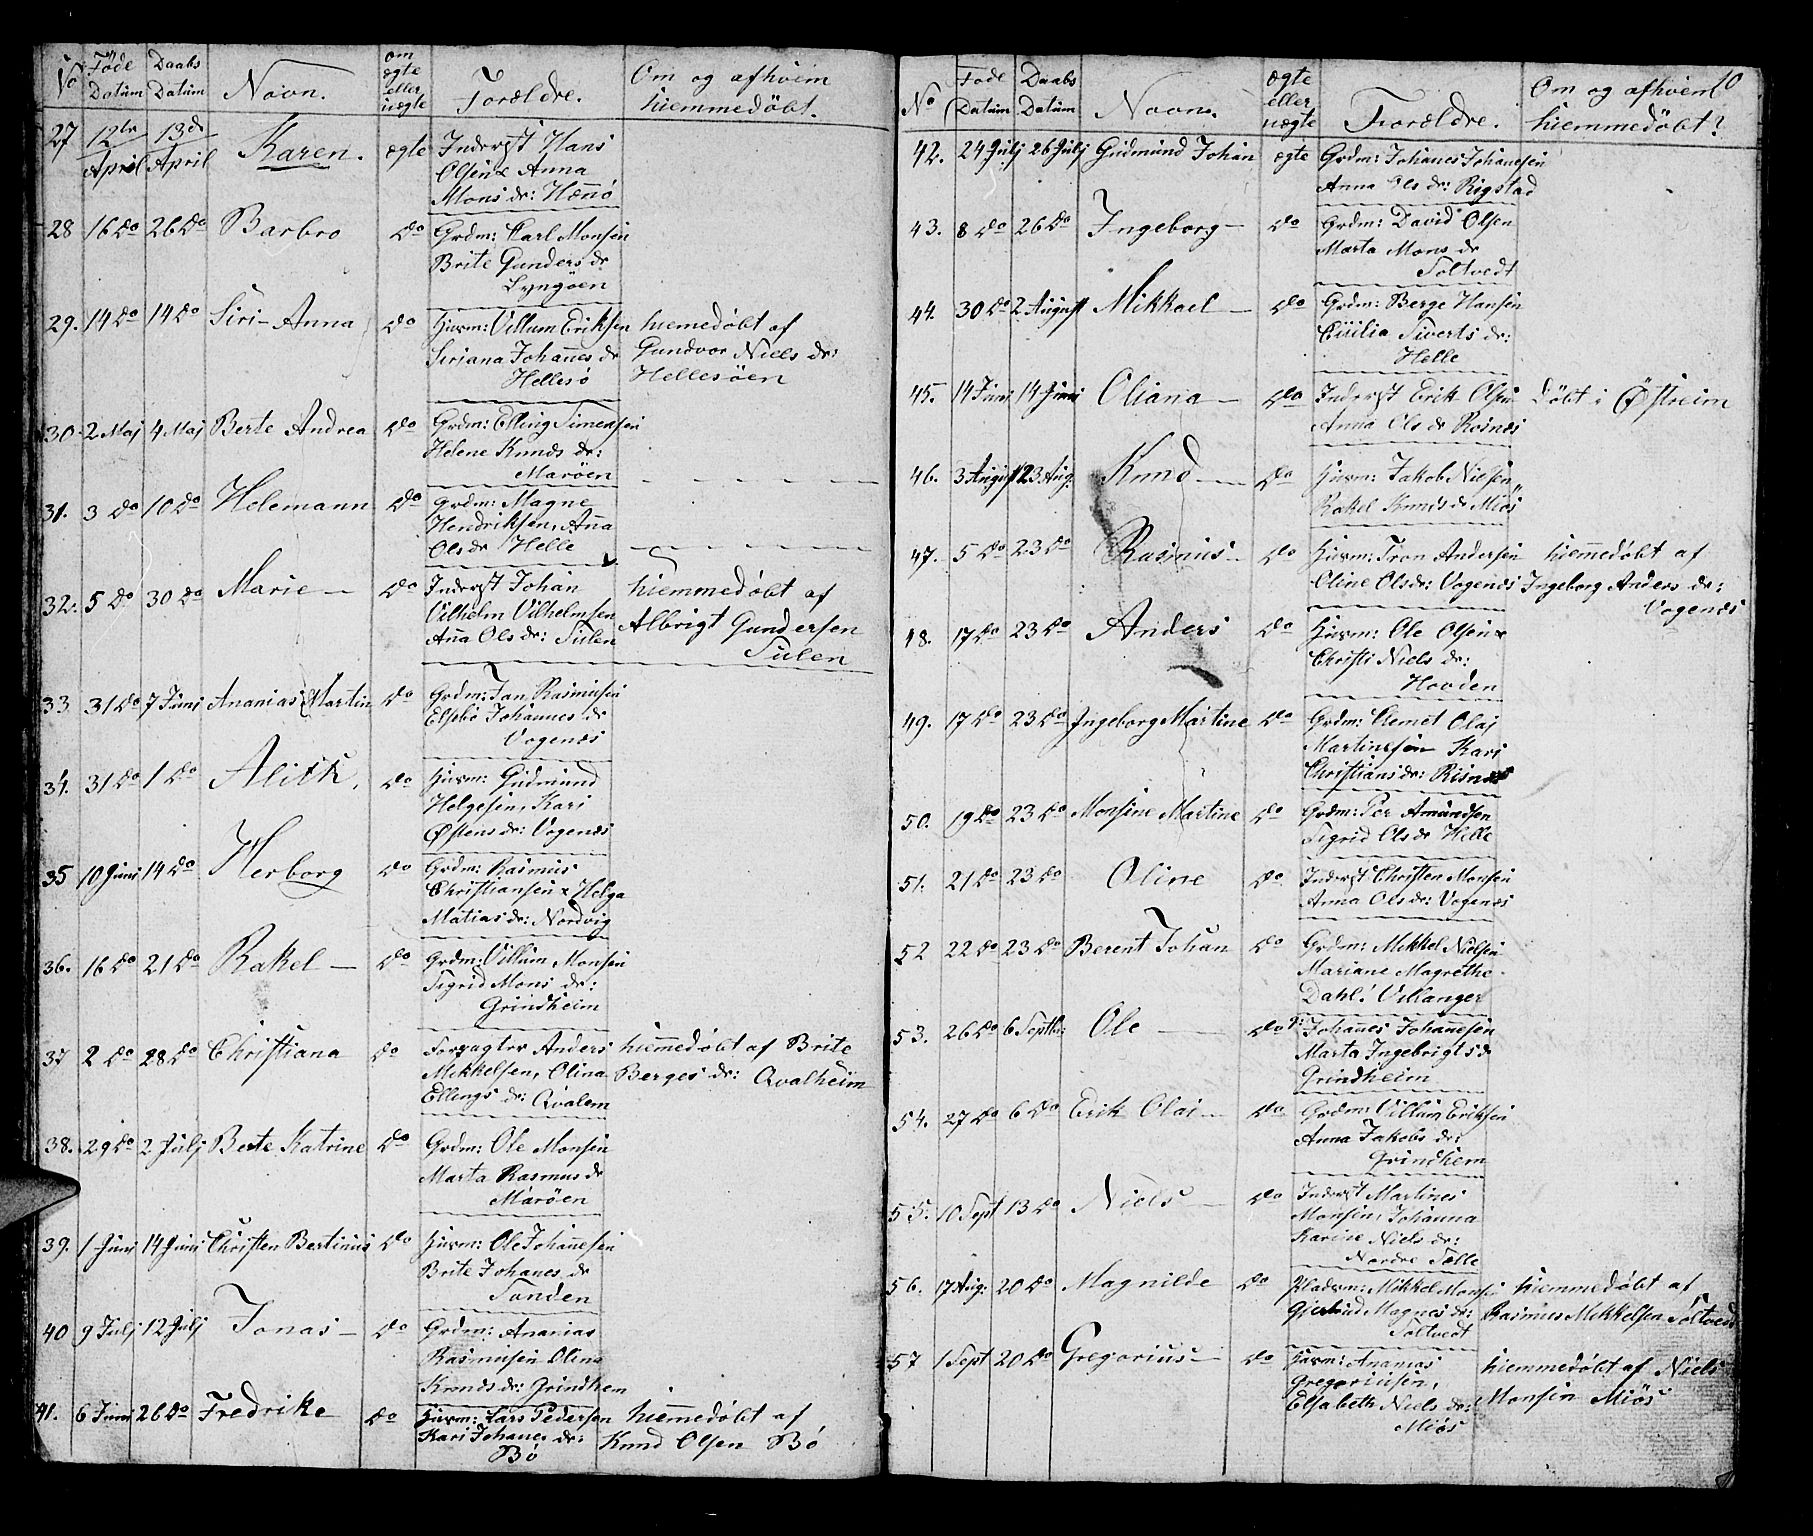 No Föde Datum Daabs Datum Navn. om ægte eller uægte Forældre. Om og afhvem hiemmedöbt.
27 12te April 13de April Karen. ægte Inderst Hans
Olsen & Anna
Mons dr: Hennö
28 16 do 26 do Barbro do Grdm: Carl Monsen
Brite Gunders dr
Lyngöen
29. 14 do 14 do Siri-Anna do Huusm: Villum Eriksen hiemedöbt af
Siriana Johannes dr Gundvor Niels dr:
Hellesö Hellesöen
30. 2 Maj 4 Maj Berte Andrea do Grdm: Elling Simensen
Helene Knuds dr:
Maröen
31. 3 do 10 do Helemann do Grdm: Magne
Hendriksen, Anna
Ols dr Helle
32. 5 do 30 do Marie — do Inderst Johan hiemmedöbt af
Vilhelm Vilhelmsen Albrigt Gundersen
Ana Ols dr: Sulen Sulen
33 31 do 7 Juni Ananias Martin do Grdm: Jan Rasmusen
Elsebe Johannes dr
Vogenæs
34. 31 do 1 do Alith. do Huusm: Gudmund
Helgesen, Kari
Østens dr: Vogenæs
35 10 Juni 14 do Herborg do Grdm: Rasmus
Christiansen & Helga
Matias dr: Nordvig
36. 16 do 21 do Rakel — do Grdm: Villum Monsen
Sigrid Mons dr:
Grindheim
37 2 do 28 do Christiana do Forpagter Anders hiemmedöbt af Brite
Mikkelsen, Olina Berges dr: Qvalheim
Ellings dr: Qvalem
38. 29 do 2 Julj Berte Katrine do Grdm: Ole Monsen
Marta Rasmus dr
Maröen
39. 1 Juni 14 Juni Christen Bertinius do Huusm: Ole Johannesen
Brite Johanes dr
Sanden
40 9 Julj 12 Julj Jonas — do Grdm: Ananias
Rasmusen Olina
Knuds dr: Grindhem
41. 6 Juni 26 do Fredrike do Huusm: Lars Pedersen hiemmedöbt af
Kari Johanes dr: Knud Olsen Bö
Bö
10
No Föde Datum Daabs Datum Navn. ægte eller uægte Forældre. Om og afhvem hiemmedöbt?
42. 24 Julj 26 Julj Gudmund Johan ægte Grdm: Johanes Johanesen
Anna Ols dr: Rigstad
43. 8 do 26 do Ingeborg — do Grdm: David Olsen
Marta Mons dr
Soltvedt
44. 30 do 2 August Mikkael — do Grdm: Berge Hansen
Cicilia Siverts dr:
Helle
45. 14 Juni 14 Juni Oliana — do Inderst Erik Olsen döbt i Østreim
Anna Ols dr Risnæs
46. 3 August 23 Aug. Knud — do Huusm: Jakob Nielsen
Rakel Knuds dr Miös
47. 5 do 23 do Rasmus — do Huusm: Tron Andersen hiemmedöbt af
Oline Ols dr: Vogenæs Ingeborg Anders dr:
Vogenæs
48. 17 do 23 do Anders do Huusm: Ole Olsen &
Christi Niels dr:
Hovden
49. 17 do 23 do Ingeborg Martine do Grdm: Clemet Olaj
Martinesen Kari
Christians dr: Risnæs
50. 19 do 23 do Monsine Martine do Grdm: Per Amundsen
Sigrid Ols dr Helle
51. 21 do 23 do Oline do Inderst Christen Monsen
Anna Ols dr: Vogenæs
52 22 do 23 do Berent Johan do Grdm: Mikkel Nielsen
Mariane Magrethe
Dahl: Villanger
53. 26 do 6 Septbr: Ole — do Johanes Johannesen
Marta Ingebrigts dr
Grindheim
54. 27 do 6 do Erik Olai — do Grdm: Villum Eriksen
Anna Jakobs dr:
Grindhem
55. 10 Sept 13 do Niels — do Inderst Martines
Monsen, Johanna
Karine Niels dr:
Nordre Selle
56. 17 Aug: 20 do Magnilde do Pladsm: Mikkel Monsen hiemmedöbt af
Giertrud Magnes dr: Rasmus Mikkelsen Soltvedt
Soltvedt
57 1 Sept 20 do Gregorius — do Huusm: Ananias hiemmedöbt af Niels
Gregoriusen, Monsen Miös
Elsabeth Niels dr:
Miös